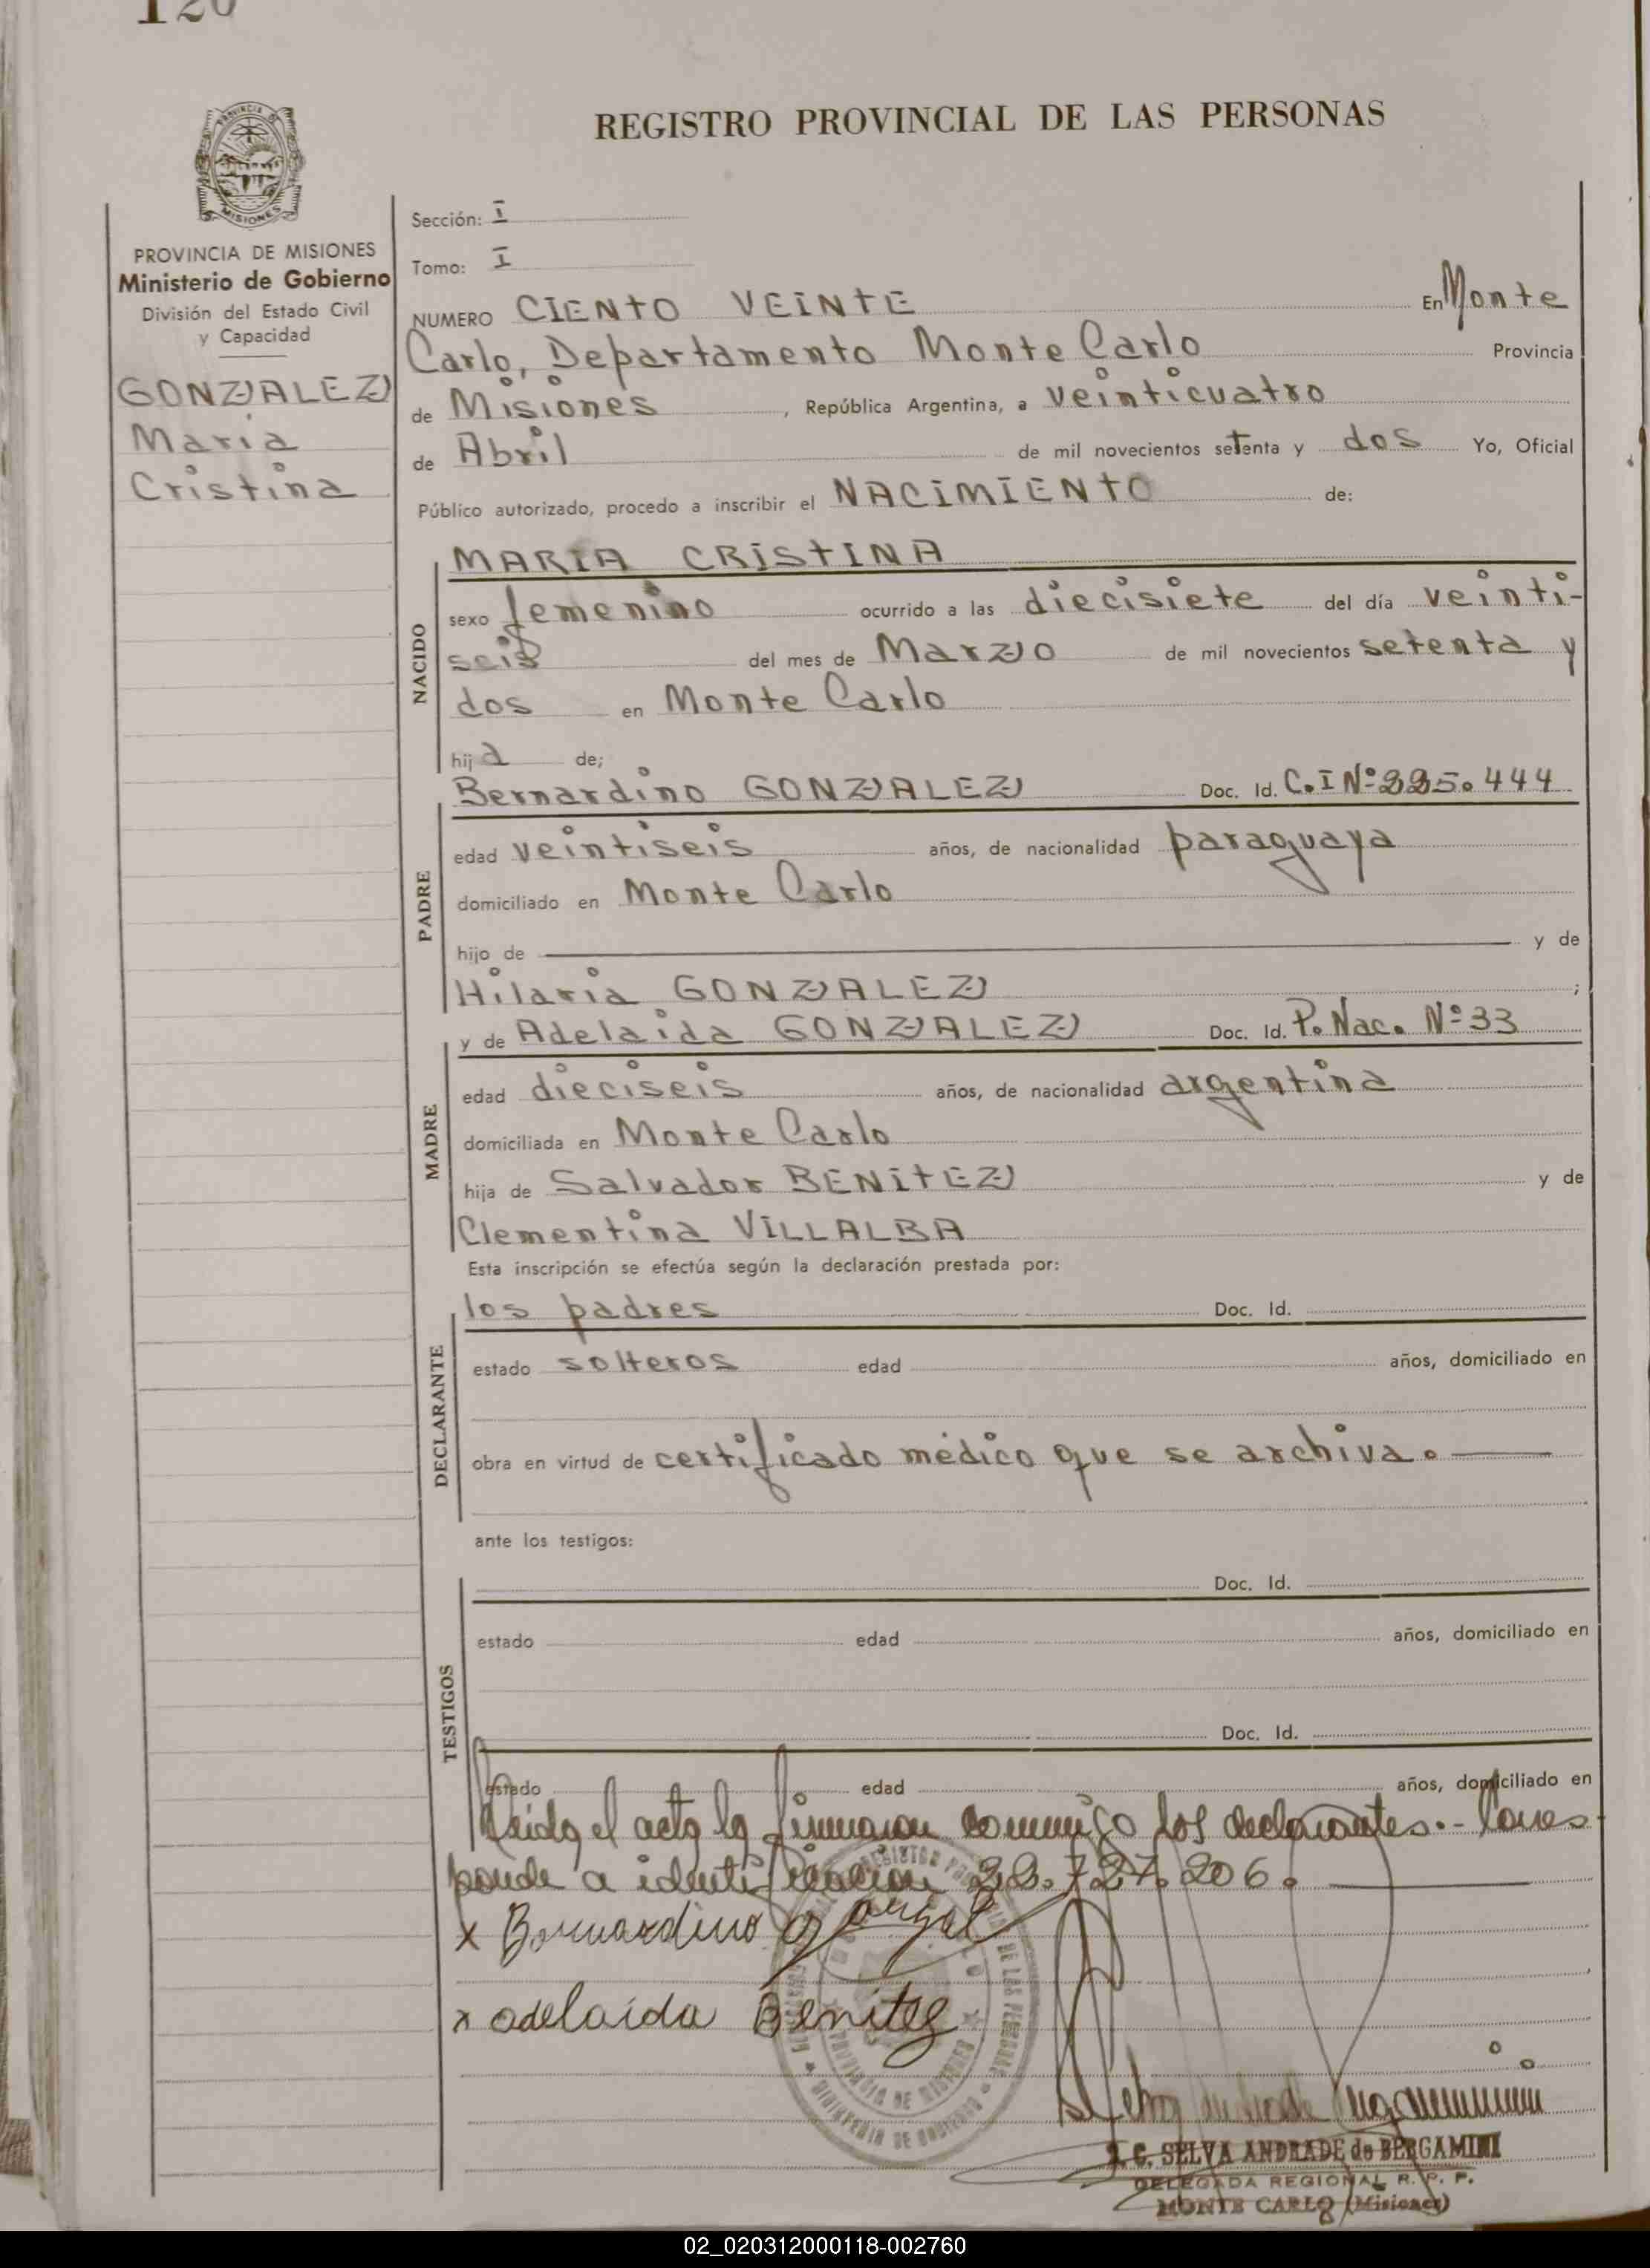 120
REGISTRO PROVINCIAL DE LAS PERSONAS
PROVINCIA DE MISIONES
Ministerio de Gobierno
División del Estado Civil
y Capacidad
GONZALEZ
María
Cristina
Sección: I
Tomo: I
NUMERO CIENTO VEINTE En Monte
Carlo, Departamento Monte Carlo Provincia
de Misiones, República Argentina, a veinticuatro
de Abril de mil novecientos setenta y dos Yo, Oficial
Público autorizado, procedo a inscribir el NACIMIENTO de:
NACIDO
MARIA CRISTINA
sexo femenino ocurrido a las diecisiete del día veinti-
seis del mes de Marzo de mil novecientos setenta y
dos en Monte Carlo
hija de;
PADRE
Bernardino GONZALEZ Doc. Id. C.I Nº 225.444
edad veintiseis años, de nacionalidad paraguaya
domiciliado en Monte Carlo
hijo de y de
Hilaria GONZALEZ ;
MADRE
y de Adelaida GONZALEZ Doc. Id. P. Nac. Nº 33
edad dieciseis años, de nacionalidad argentina
domiciliada en Monte Carlo
hija de Salvador BENITEZ y de
Clementina VILLALBA
Esta inscripción se efectúa según la declaración prestada por:
DECLARANTE
los padres Doc. Id.
estado solteros edad años, domiciliado en
obra en virtud de certificado médico que se archiva.
ante los testigos:
TESTIGOS
Doc. Id.
estado edad años, domiciliado en
Doc. Id.
estado edad años, domiciliado en
Leida el acta la firman conmigo los declarantes.- Corres
ponde a identificacion 22.727.206.
x Bernardino Gonzal
x adelaida Benitez
PROVINCIA DE MISIONES
MINISTERIO DE GOBIERNO
J. C. SELVA ANDRADE de BERGAMINI
DELEGADA REGIONAL R. P. P.
MONTE CARLO (Misiones)
02_020312000118-002760